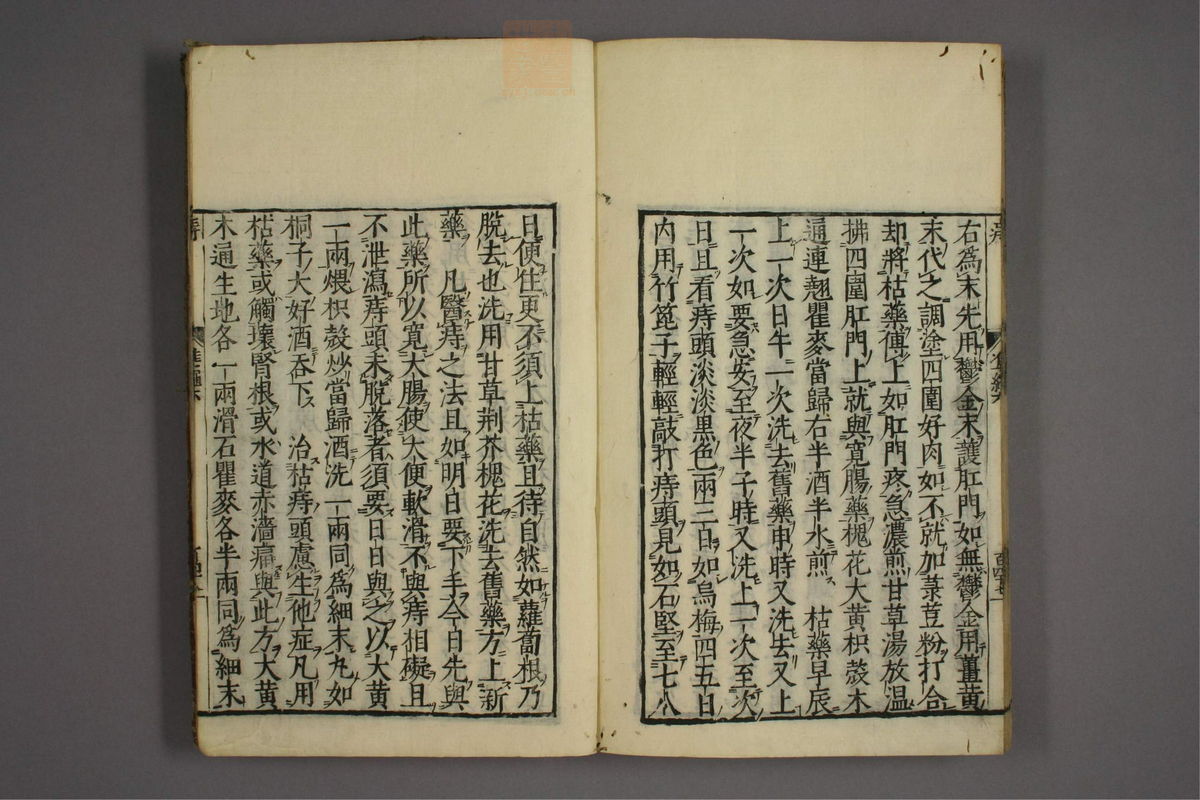 右爲末先用鬱金末護肛門如無鬱金用薑黄
末代之調塗四圍好肉如不就加菉荳粉打合
却將枯藥傅上如肛門疼急濃煎甘草湯放温
拂四圍肛門上就與寛腸藥槐花大黄枳殻木
通連翹瞿麥當歸右半酒半水煎　枯藥早辰
上一次日午一次洗去舊藥申時又洗去又上
一次如要急安至夜半子時又洗上一次至次
日且看痔頭淡淡黒色兩三日如烏梅四五日
内用竹篦子輕輕敲打痔頭見如石堅至七八
日便住更不須上枯藥且待自然如蘿蔔根乃
脱去也洗用甘草荆芥槐花洗去舊藥方上新
藥　凡醫痔之法且如明日要下手今日先與
此藥所以寛大腸使大便軟滑不與痔相礙且
不泄瀉痔頭未脱落者須要日日與之以大黄
一兩煨枳殻炒當歸酒洗一兩同爲細末丸如
桐子大好酒吞下　治枯痔頭慮生他症凡用
枯藥或觸壞腎根或水道赤濇痛與此方大黄
木通生地各一兩滑石瞿麥各半兩同爲細末